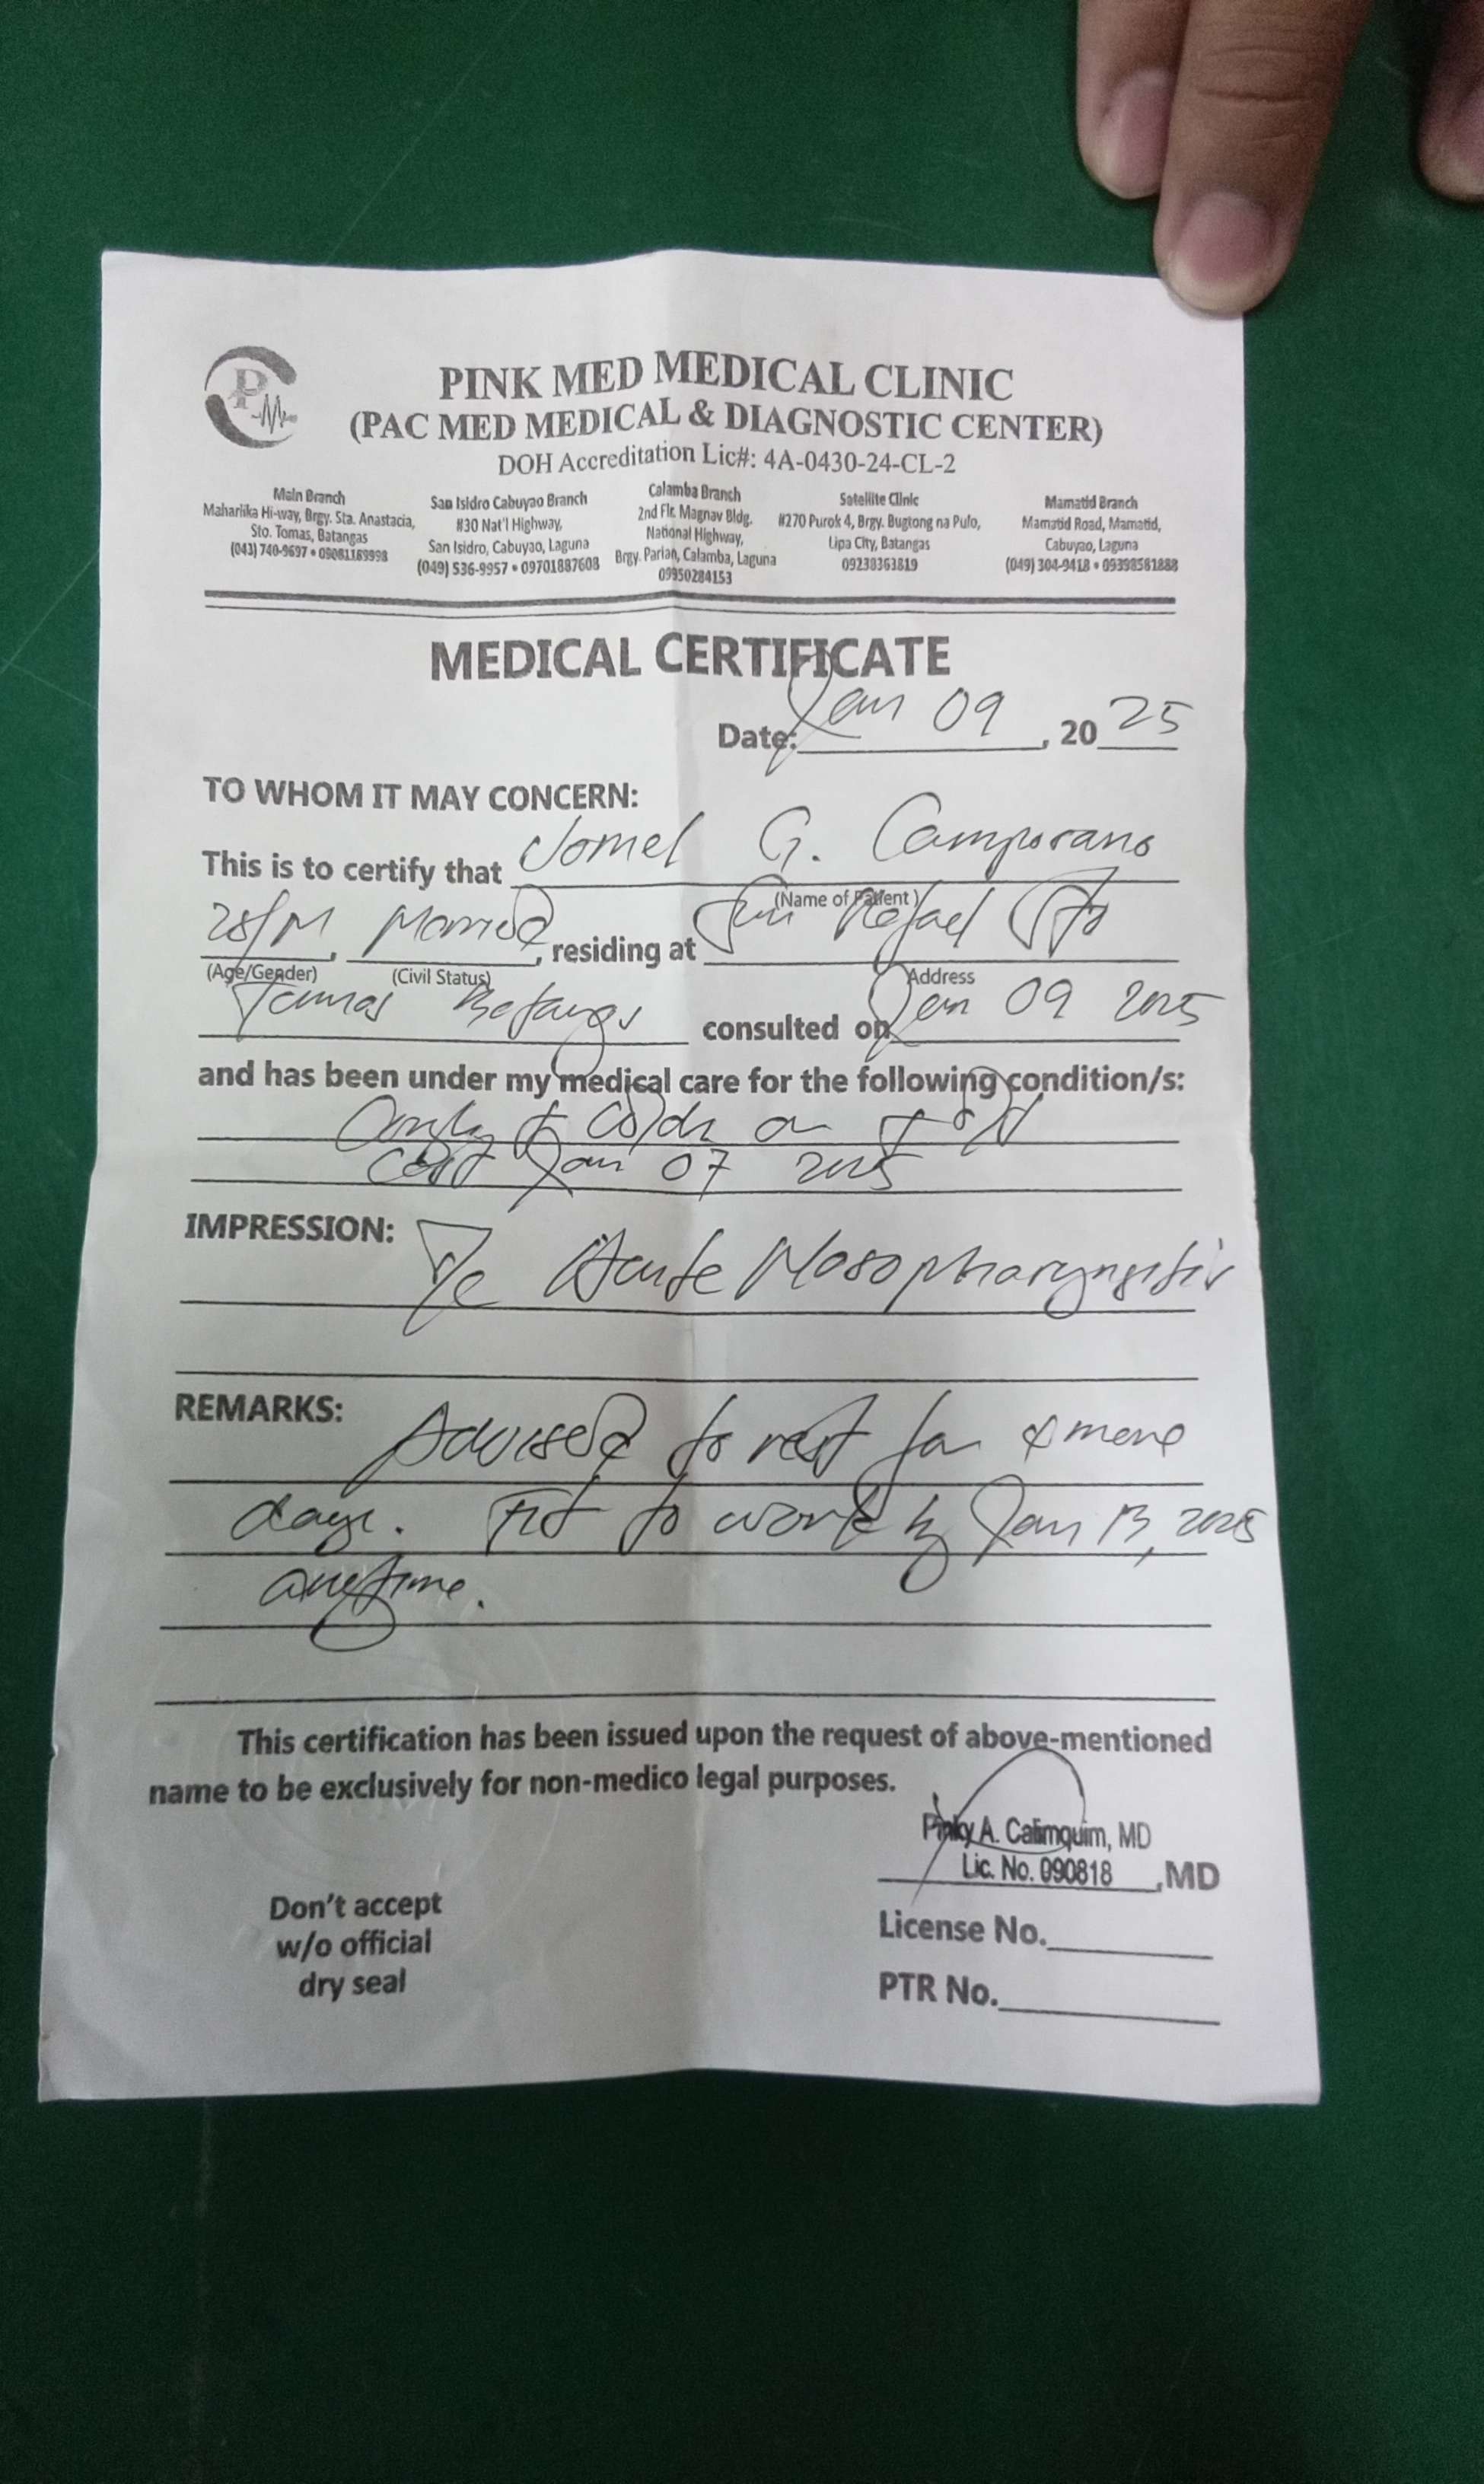 PINK MED MEDICAL CLINIC
(PAC MED MEDICAL & DIAGNOSTIC CENTER)
DOH Accreditation Lic#: 4A-0430-24-CL-2
Main Branch
Maharlika Hi-way, Brgy. Sta. Anastacia,
Sto. Tomas, Batangas
(043) 740-9697 • 09081189998
San Isidro Cabuyao Branch
#30 Nat'l Highway,
San Isidro, Cabuyao, Laguna
(049) 536-9957 • 09701887608
Calamba Branch
2nd Flr. Magnav Bldg.
National Highway,
Brgy. Parian, Calamba, Laguna
09950284153
Satellite Clinic
#270 Purok 4, Brgy. Bugtong na Pulo,
Lipa City, Batangas
09238363819
Mamatid Branch
Mamatid Road, Mamatid,
Cabuyao, Laguna
(049) 304-9418 • 09398581888
MEDICAL CERTIFICATE
Date: Jan 09, 2025
TO WHOM IT MAY CONCERN:
This is to certify that Jomel G. Camporano
(Name of Patient)
28/M, Married, residing at San Rafael Sto
(Age/Gender) (Civil Status) Address
Tomas Batangas consulted on Jan 09 2025
and has been under my medical care for the following condition/s:
Cough & Colds
Jan 07 2025
IMPRESSION: Acute Nasopharyngitis
REMARKS: Advised to rest for more
days. Fit to work by Jan 13, 2025
anytime.
This certification has been issued upon the request of above-mentioned
name to be exclusively for non-medico legal purposes.
Pinky A. Calimquim, MD
Lic. No. 090818 ,MD
Don't accept
w/o official
dry seal
License No.
PTR No.